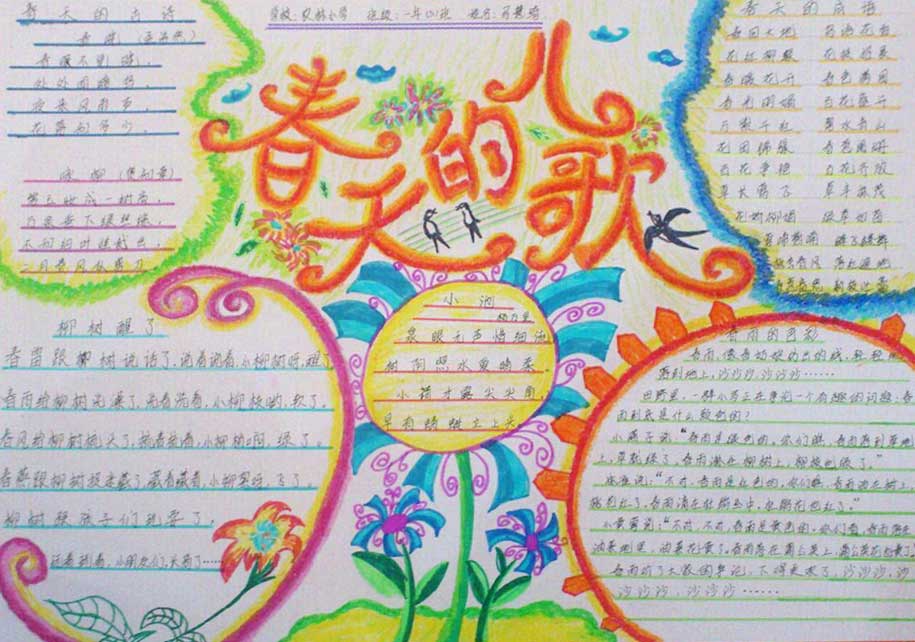 春天的儿歌
春天的古诗
春晓（孟浩然）
春眠不觉晓，
处处闻啼鸟，
夜来风雨声，
花落知多少。
咏柳
不知细叶谁裁出，
二月春风似剪刀
春天的成语
春回大地 鸟语花香
花红柳绿
春暖花开 春色满园
春光明媚 百花盛开
万紫千红
花团锦簇
百花争艳 百花齐放
草长莺飞
柳树醒了
春雷跟柳树说话了，说着说着，小柳树呀，醒了。
春雨给柳树洗澡了，洗着洗着，小柳枝哟，软了。
春风给柳树梳头了，梳着梳着，小柳梢啊，绿了。
春燕跟柳树捉迷藏了，藏着藏着，小柳絮呀，飞了。
柳树跟孩子们玩耍了，
玩着玩着，小朋友们，长高了……
小池
杨万里
泉眼无声惜细流
树阴照水爱晴柔
小荷才露尖尖角
早有蜻蜓立上头
春雨的色彩
春雨，像春姑娘纺出的线，轻轻地
落到地上，沙沙沙，沙沙沙……
田野里，一群小鸟正在争论一个有趣的问题，春
雨到底是什么颜色的？
小燕子说：“春雨是绿色的，你们瞧，春雨落到草地
上，草就绿了，春雨淋在柳树上，柳枝也绿了。”
麻雀说：“不对，春雨是红色的，你们瞧，春雨洒在桃树上，
桃花红了，春雨滴在杜鹃丛中，杜鹃花也红了。”
小黄莺说：“不对，不对，春雨是黄色的，你们看，春雨落在
油菜地里，油菜花黄了，春雨落在蒲公英上，蒲公英花也黄了
春雨听了大家的争论，下得更欢了，沙沙沙，沙
沙沙，沙沙沙……